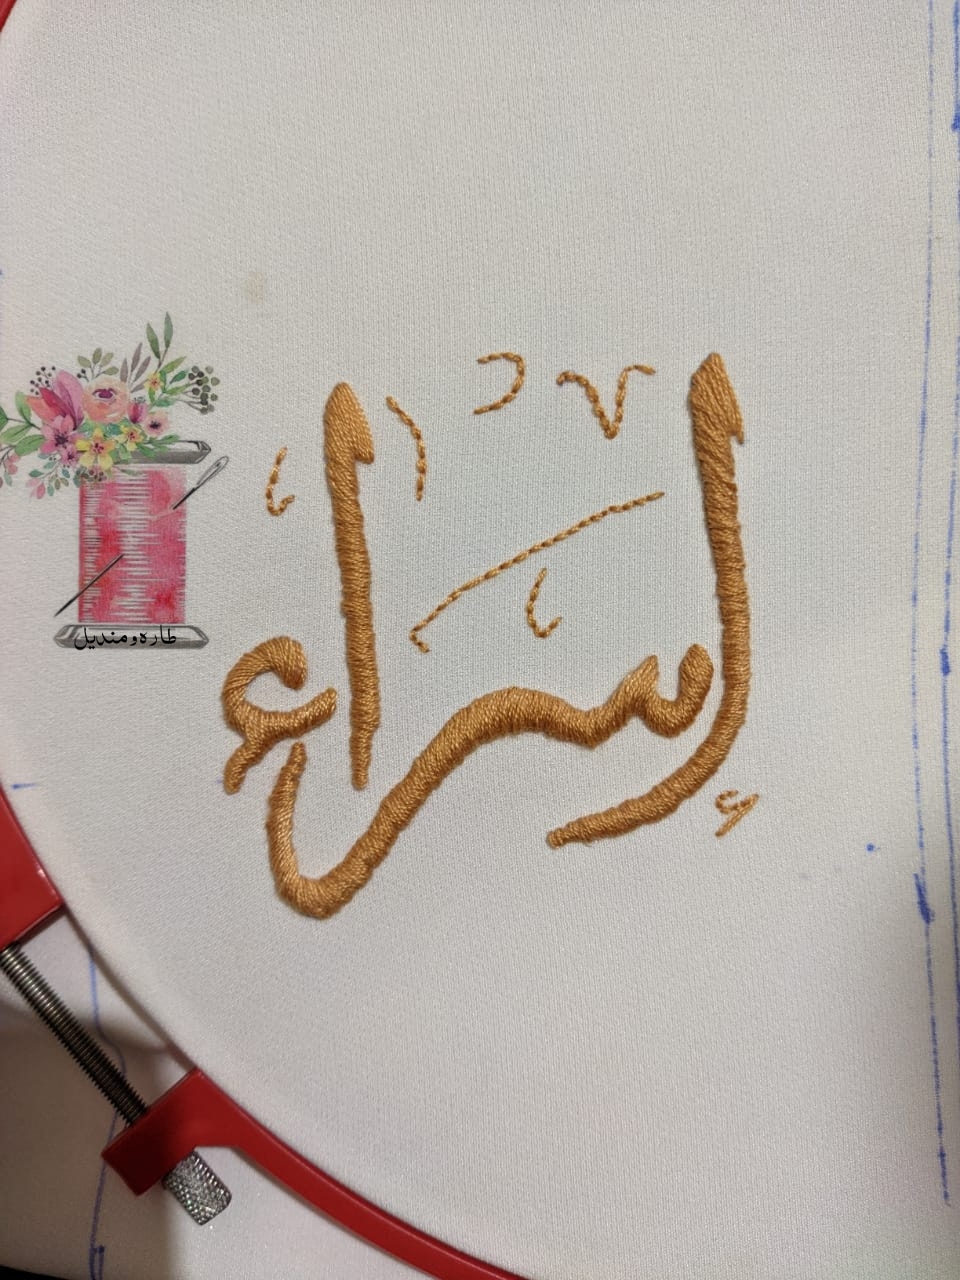 إسراء
طاره ومنديل